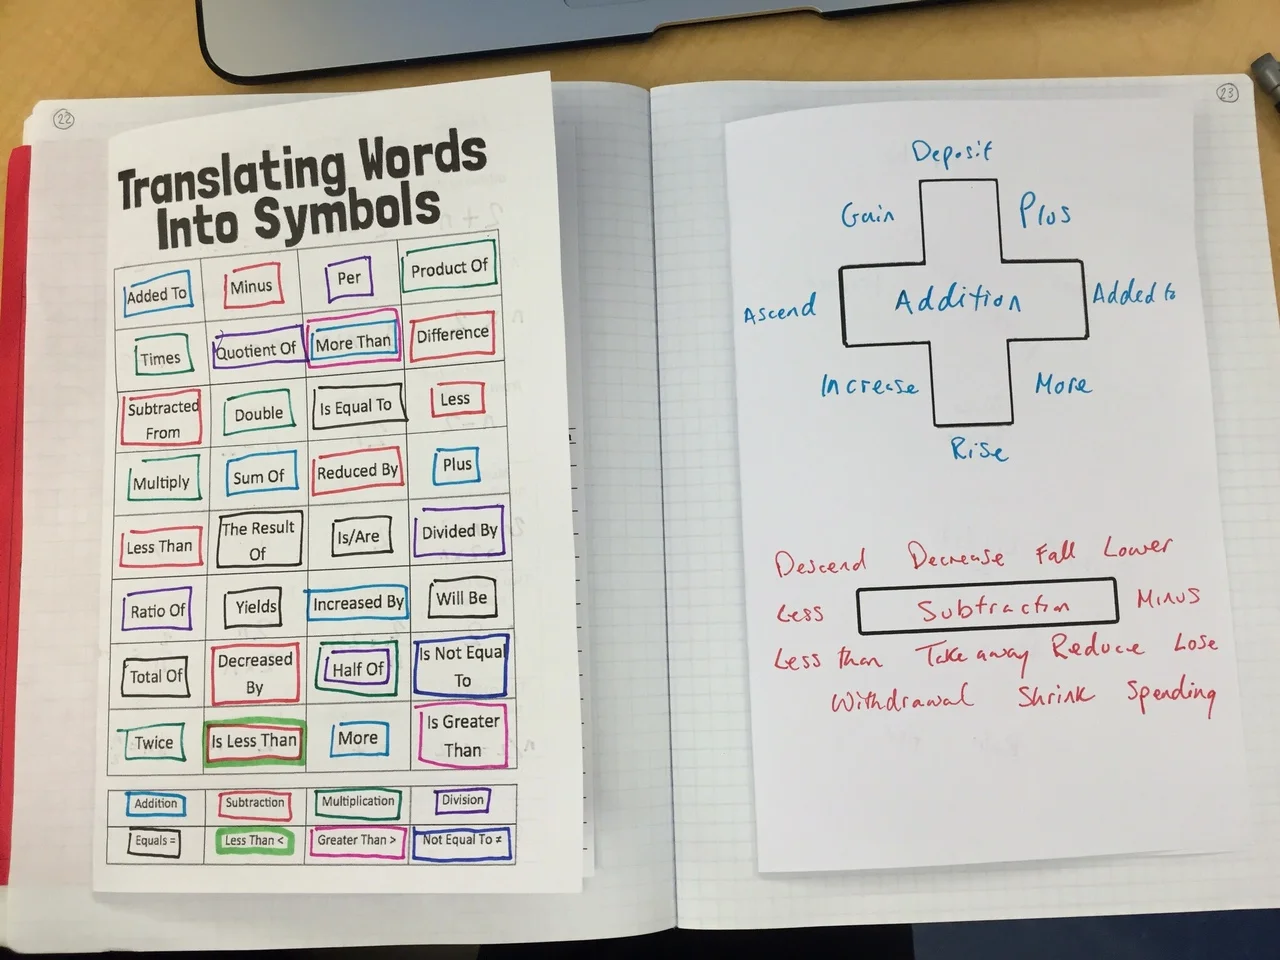 22
Translating Words
Into Symbols
Added To Minus Per Product Of
Times Quotient Of More Than Difference
Subtracted From Double Is Equal To Less
Multiply Sum Of Reduced By Plus
Less Than The Result Of Is/Are Divided By
Ratio Of Yields Increased By Will Be
Total Of Decreased By Half Of Is Not Equal To
Twice Is Less Than More Is Greater Than
Addition Subtraction Multiplication Division
Equals = Less Than < Greater Than > Not Equal To ≠
23
Deposit
Gain Plus
Ascend Addition Added to
Increase More
Rise
Descend Decrease Fall Lower
Less Subtraction Minus
Less than Take away Reduce Lose
Withdrawal Shrink Spending